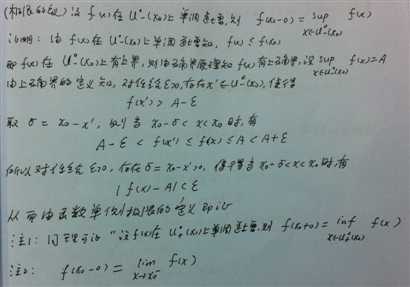 (极限的定义) 设 f(x) 在 U°₋(x₀) 上单调递增, 则 f(x₀-0) = sup f(x)
x∈U°₋(x₀)
证明: 由 f(x) 在 U°₋(x₀) 上单调递增知, f(x) ≤ f(x₀)
即 f(x) 在 U°₋(x₀) 上有上界, 则由确界原理知 f(x) 有上确界, 设 sup f(x) = A
x∈U°₋(x₀)
由上确界的定义知, 对任给 ε>0, 存在 x'∈U°₋(x₀), 使得
f(x') > A-ε
取 δ = x₀-x', 则当 x₀-δ < x < x₀ 时, 有
A-ε < f(x') ≤ f(x) ≤ A < A+ε
所以对任给 ε>0, 存在 δ = x₀-x'>0, 使得当 x₀-δ<x<x₀ 时, 有
|f(x)-A| < ε
从而由函数单侧极限的定义即证
注1: 同理可证 "设 f(x) 在 U°₊(x₀) 上单调递增, 则 f(x₀+0) = inf f(x)
x∈U°₊(x₀)
注2: f(x₀-0) = lim f(x)
x→x₀⁻